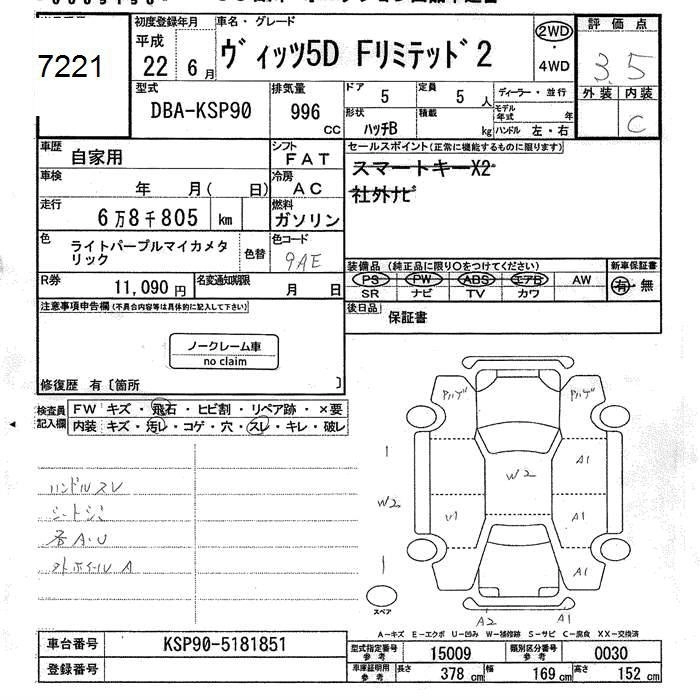 7221
初度登録年月
平成
22 6月
車名・グレード
ヴィッツ5D Fリミテッド2
2WD
・
4WD
評価点
3.5
外装 内装
C
型式
DBA-KSP90
排気量
996
CC
ドア
5
定員
5人
形状
ハッチB
積載
kg
ディーラー・並行
モデル年式 年
ハンドル 左・右
車歴
自家用
シフト
FAT
車検
年 月( 日)
冷房
AC
走行
6万8千805 km
燃料
ガソリン
色
ライトパープルマイカメタリック
色替
色コード
9AE
R券
11,090円
名変通知期限
月 日
セールスポイント(正常に機能するものに限ります)
スマートキーX2
社外ナビ
装備品(純正品に限り○をつけてください)
PS PW ABS エアB AW
SR ナビ TV カワ
新車保証書
有・無
後日品
保証書
注意事項申告欄(不具合内容等は具体的に記入して下さい)
ノークレーム車
no claim
修復歴 有〔箇所 〕
検査員記入欄
FW キズ・飛石・ヒビ割・リペア跡・×要
内装 キズ・汚レ・コゲ・穴・スレ・キレ・破レ
ハンドルスレ
シートシミ
各A.U
外ホイールA
W2
W2
A1
U1
A1
A1
A2
A1
スペア
A-キズ E-エクボ U-凹み W-補修跡 S-サビ C-腐食 XX-交換済
車台番号
KSP90-5181851
登録番号
型式指定番号
参考
15009
類別区分番号
参考
0030
車庫証明用
参考
長さ 378cm 幅 169cm 高さ 152cm